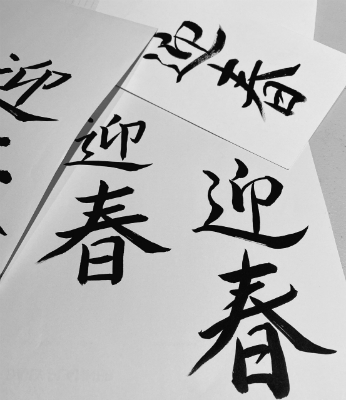 迎
春
迎
春
迎
春
迎